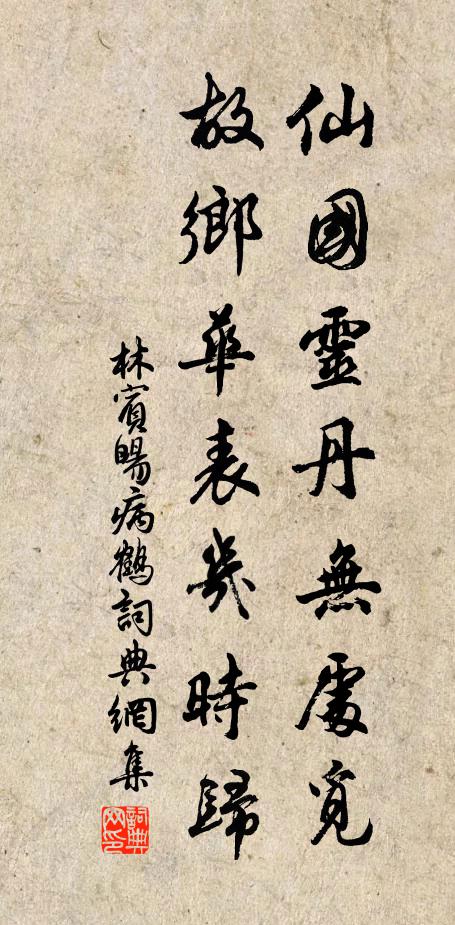 仙國靈丹無處覓
故鄉華表幾時歸
林賓暘病鶴詞典網集
詞典網印